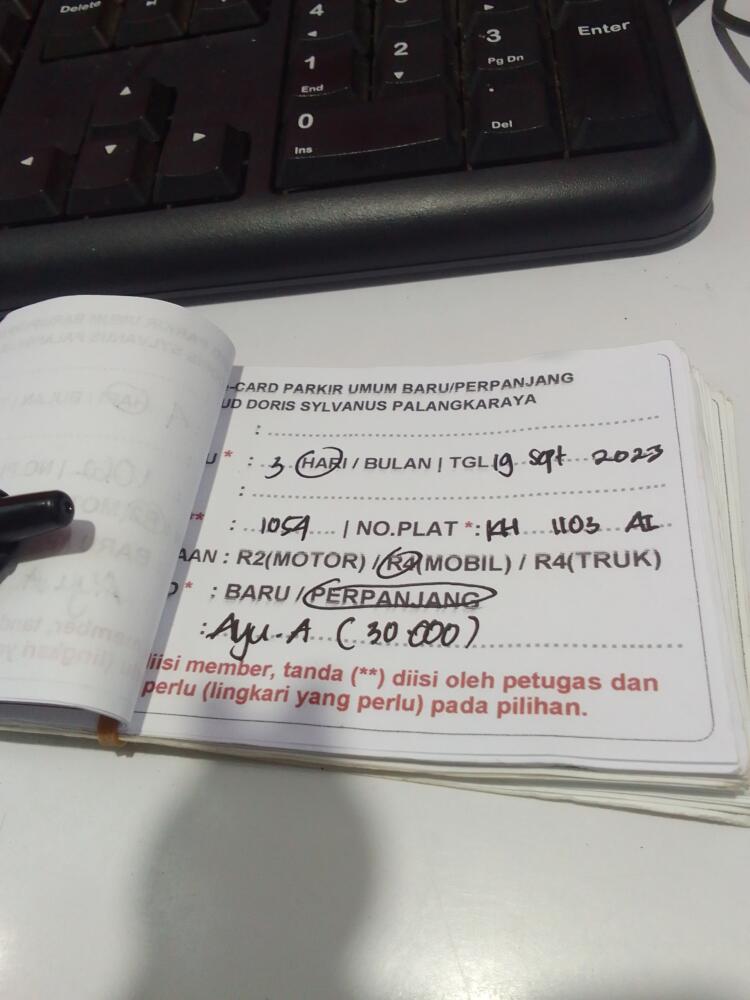 Delete
4
1
End
2
3
Pg Dn
Enter
0
Ins
.
Del
-CARD PARKIR UMUM BARU/PERPANJANG
UD DORIS SYLVANUS PALANGKARAYA
:
U * : 3 HARI / BULAN | TGL 19 Sept 2023
:
** : 1054 | NO.PLAT *: KH 1103 AI
AAN : R2(MOTOR) / R4(MOBIL) / R4(TRUK)
* : BARU / PERPANJANG
: Ayu. A (30.000)
diisi member, tanda (**) diisi oleh petugas dan
perlu (lingkari yang perlu) pada pilihan.